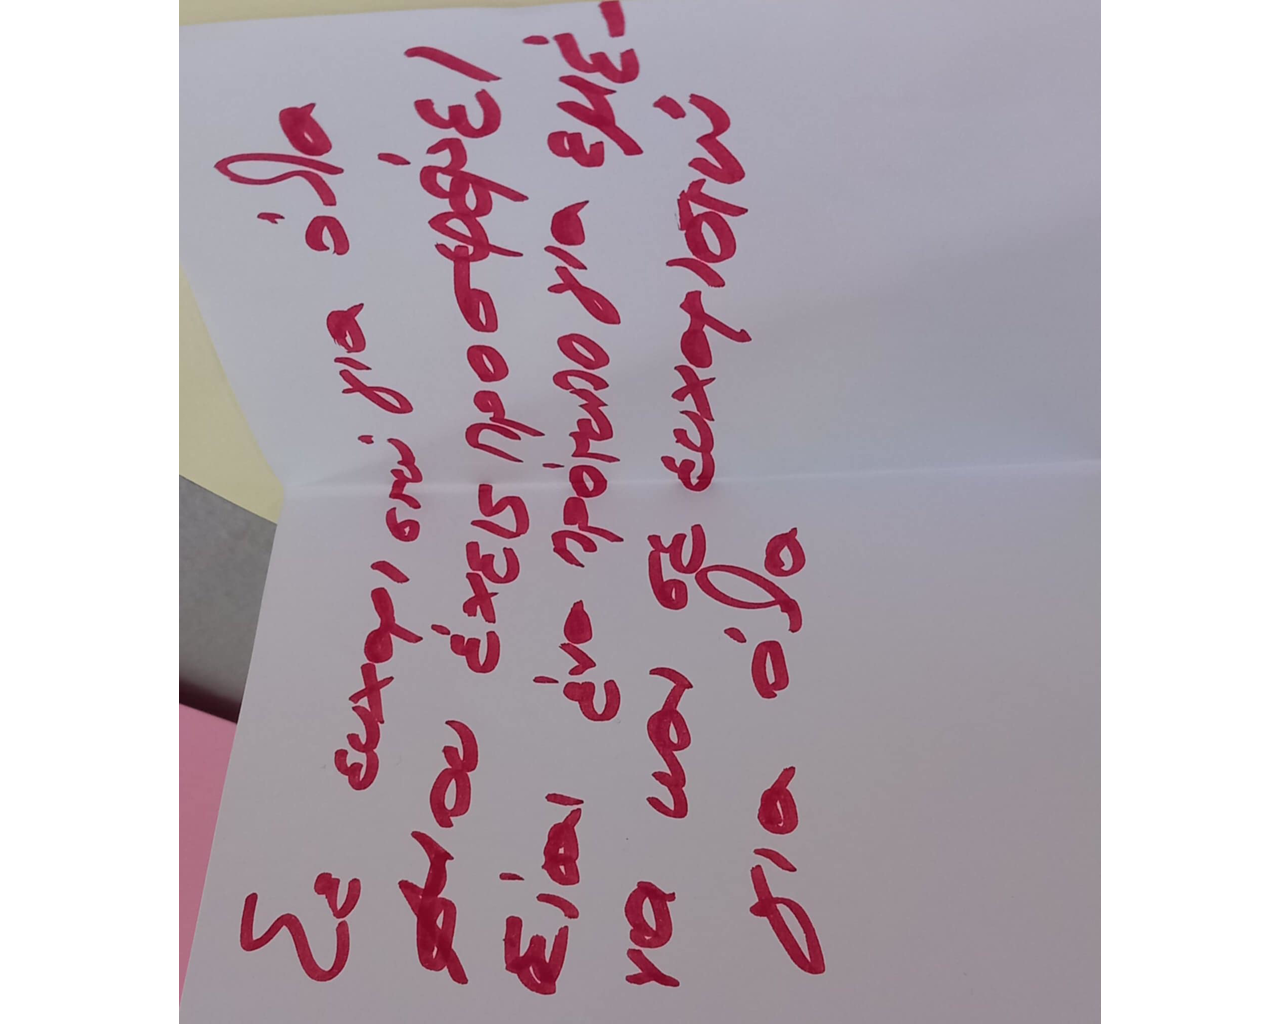 Σε ευχαριστώ για όλα
έχεις προσφέρει
Είσαι ένα πρότυπο για εμέ-
να και σε ευχαριστώ
για όλα